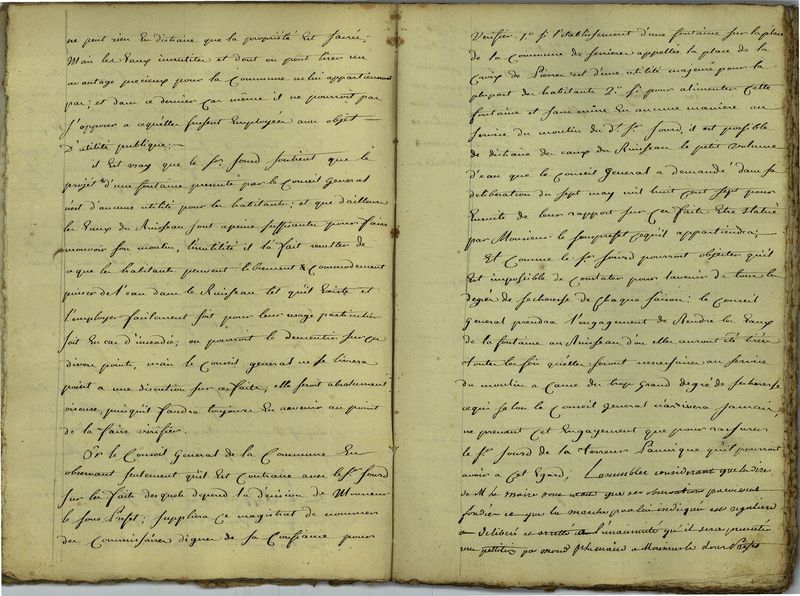 ne peut rien En distraire que la propriété Est sacrée;
Mais les Eaux inutiles et dont on peut tirer un
avantage precieux pour la Commune ne lui appartiennent
pas; et dans ce dernier Cas même il ne pourroit pas
s'opposer a cequ'elles fussent Employées aux objets
D'utilité publique;
il Est vray que le Sr. Sourd soutient que le
projet d'une fontaine presenté par le Conseil General
n'est d'aucune utilité pour les habitants; et que d'ailleurs
les Eaux du Ruisseau sont apeine suffisantes pour faire
mouvoir son moulin, l'inutilité il la fait resulter de
ce que les habitants peuvent librement & Commodement
puiser de l'eau dans le Ruisseau tel qu'il Existe et
l'employer facilement soit pour leur usage particulier
soit En cas d'incendie; on pourroit le dementir sur ces
divers points, mais le Conseil general ne se livrera
point a une discution sur ces faits, elle seroit absolument
oiseuse, puisqu'il faudra toujours En revenir au point
de les faire verifier.
Or le Conseil General de la Commune En
observant seulement qu'il Est Contraire avec le Sr. Sourd
sur les faits desquels depend la decision de Monsieur
le sous Prefet; suppliera ce magistrat de nommer
des Commissaires dignes de sa Confiance pour
Verifier 1o. si l'etablissement d'une fontaine sur la place
de la Commune de appellée la place de la
Croix de Pierre est d'une utilité majeure pour la
plupart des habitants 2o. Si pour alimenter Cette
fontaine et sans nuire En aucune maniere au
service du moulin du d. Sr. Sourd, il est possible
de distraire des eaux du Ruisseau le petit volume
d'eau que le Conseil General a demandé dans sa
deliberation du sept may mil huit cent sept pour
Ensuite de leur rapport sur Ces faits Etre statué
par Monsieur le souprefet cequ'il appartiendra;
Et Comme le Sr. Sourd pourroit objecter qu'il
Est impossible de Constater pour l'avenir de tous les
degrés de secheresse de Chaque saison; le Conseil
General prendra l'engagement de Rendre les Eaux
de la fontaine au Ruisseau d'ou elles auront été tirées
toutes les fois qu'elles seront necessaires au service
du moulin a Cause du trop Grand degré de secheresse
cequi selon le Conseil general n'arrivera jamais,
ne prenant cet Engagement que pour rassurer
le Sr. Sourd de la Terreur Panique qu'il pourroit
avoir a Cet Egard; L'assemblée considerant que le dire
de M. le maire que ses observations paroissent
fondées et que la marche par lui indiquée est reguliere
a deliberé et arrêté a l'unanimité qu'il sera presenté
une petition par mond. Sr. le maire a Monsieur le sous Prefet